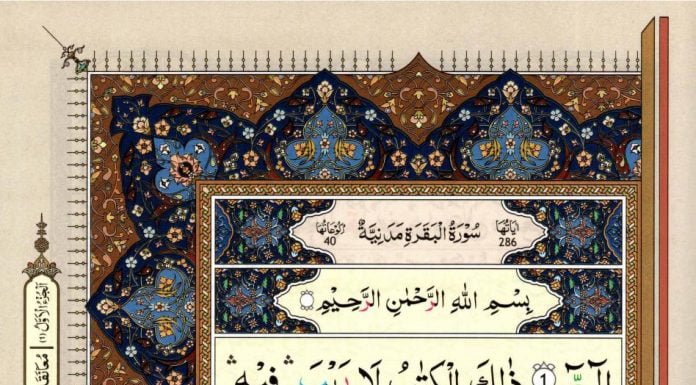 اٰیَاتُهَا 286 سُوْرَةُ الْبَقَرَةِ مَدَنِيَّةٌ رُكُوْعَاتُهَا 40
بِسْمِ اللّٰهِ الرَّحْمٰنِ الرَّحِيْمِ
الٓمّٓ 1 ذٰلِكَ الْكِتٰبُ لَا رَيْبَ فِيْهِ
اَلْجُزْءُ الْاَوَّلُ (١)